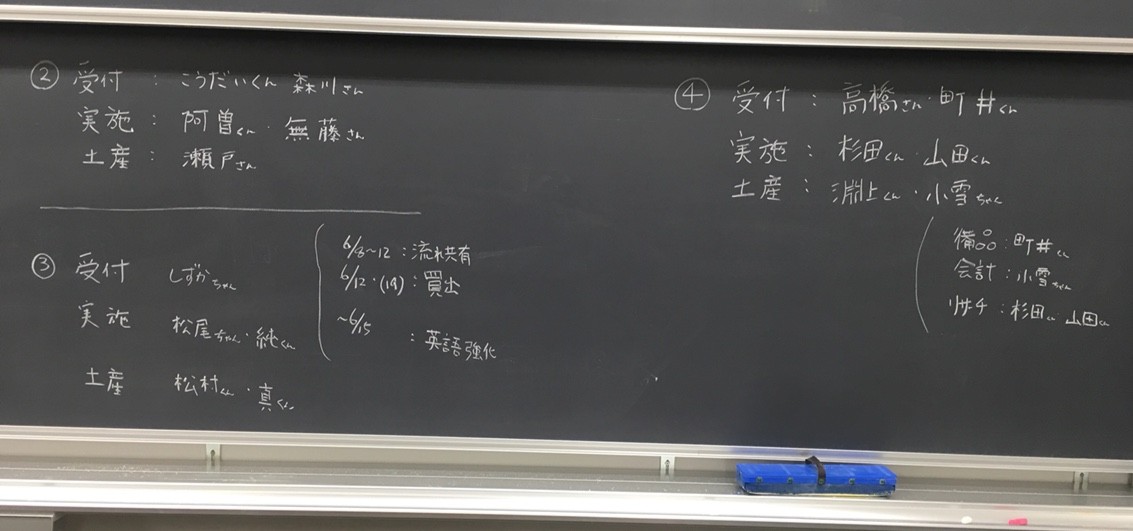 ② 受付 : こうだいくん 森川さん
実施 : 阿曽くん・無藤さん
土産 : 瀬戸さん
③ 受付 しずかちゃん
実施 松尾ちゃん・純くん
土産 松村くん・真くん
6/8~12 : 流れ共有
6/12・(14) : 買出
~6/15 : 英語強化
④ 受付 : 高橋さん・町井くん
実施 : 杉田くん・山田くん
土産 : 淵上くん・小雪ちゃん
備品 : 町井くん
会計 : 小雪ちゃん
リサチ : 杉田くん 山田くん